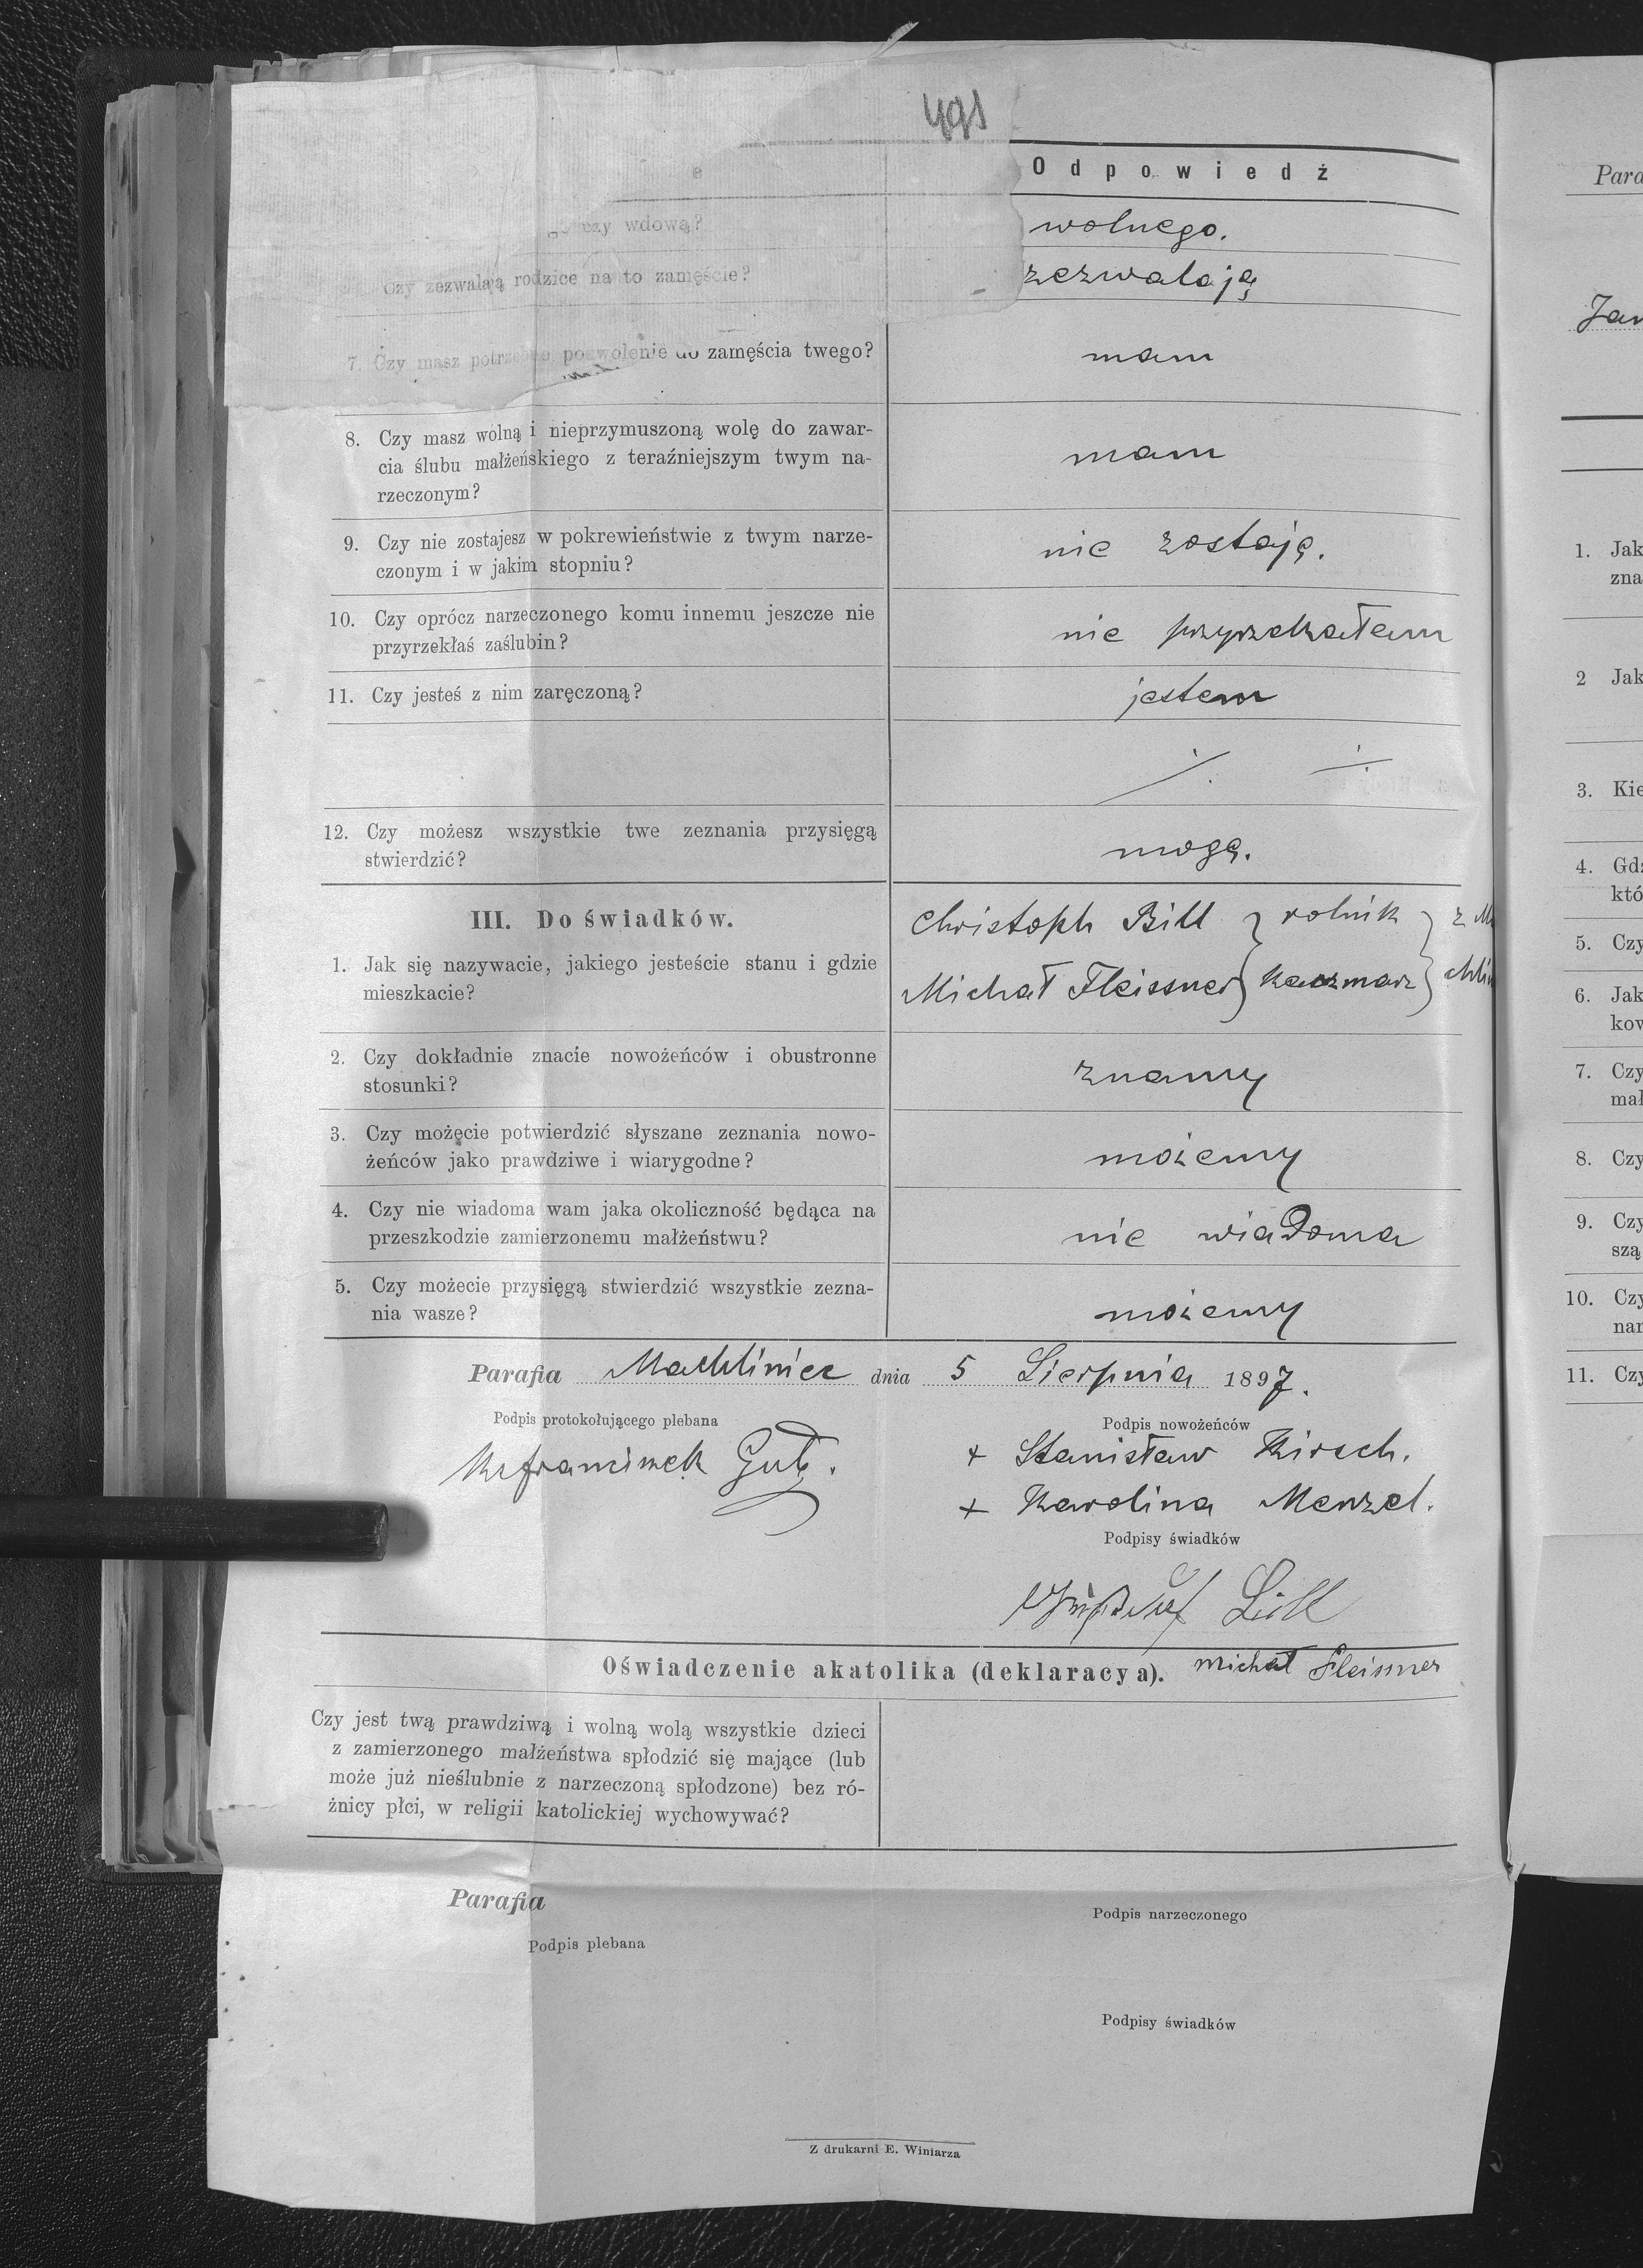 491
Odpowiedź
czy wdową?
wolnego.
Czy zezwalają rodzice na to zamęście?
zezwalają
7. Czy masz potrzebne pozwolenie do zamęścia twego?
mam
8. Czy masz wolną i nieprzymuszoną wolę do zawar-
cia ślubu małżeńskiego z teraźniejszym twym na-
rzeczonym?
mam
9. Czy nie zostajesz w pokrewieństwie z twym narze-
czonym i w jakim stopniu?
nie zostaję.
10. Czy oprócz narzeczonego komu innemu jeszcze nie
przyrzekłaś zaślubin?
nie przyrzekałam
11. Czy jesteś z nim zaręczoną?
jestem
12. Czy możesz wszystkie twe zeznania przysięgą
stwierdzić?
mogę.
III. Do świadków.
1. Jak się nazywacie, jakiego jesteście stanu i gdzie
mieszkacie?
Christoph Bill } rolnik } z Ma
Michał Fleissner } karczmarz } chlin
2. Czy dokładnie znacie nowożeńców i obustronne
stosunki?
znamy
3. Czy możęcie potwierdzić słyszane zeznania nowo-
żeńców jako prawdziwe i wiarygodne?
możemy
4. Czy nie wiadoma wam jaka okoliczność będąca na
przeszkodzie zamierzonemu małżeństwu?
nie wiadoma
5. Czy możecie przysięgą stwierdzić wszystkie zezna-
nia wasze?
możemy
Parafia Machliniec dnia 5 Sierpnia 1897.
Podpis protokołującego plebana
Podpis nowożeńców
+ Stanisław Kirsch.
+ Karolina Menzel.
Podpisy świadków
michał Fleissner
Oświadczenie akatolika (deklaracya).
Czy jest twą prawdziwą i wolną wolą wszystkie dzieci
z zamierzonego małżeństwa spłodzić się mające (lub
może już nieślubnie z narzeczoną spłodzone) bez ró-
żnicy płci, w religii katolickiej wychowywać?
Parafia
Podpis plebana
Podpis narzeczonego
Podpisy świadków
Z drukarni E. Winiarza
Para
Jan
1. Jak
zna
2 Jak
3. Kie
4. Gdz
któ
5. Czy
6. Jak
kow
7. Czy
mał
8. Czy
9. Czy
szą
10. Czy
nar
11. Czy